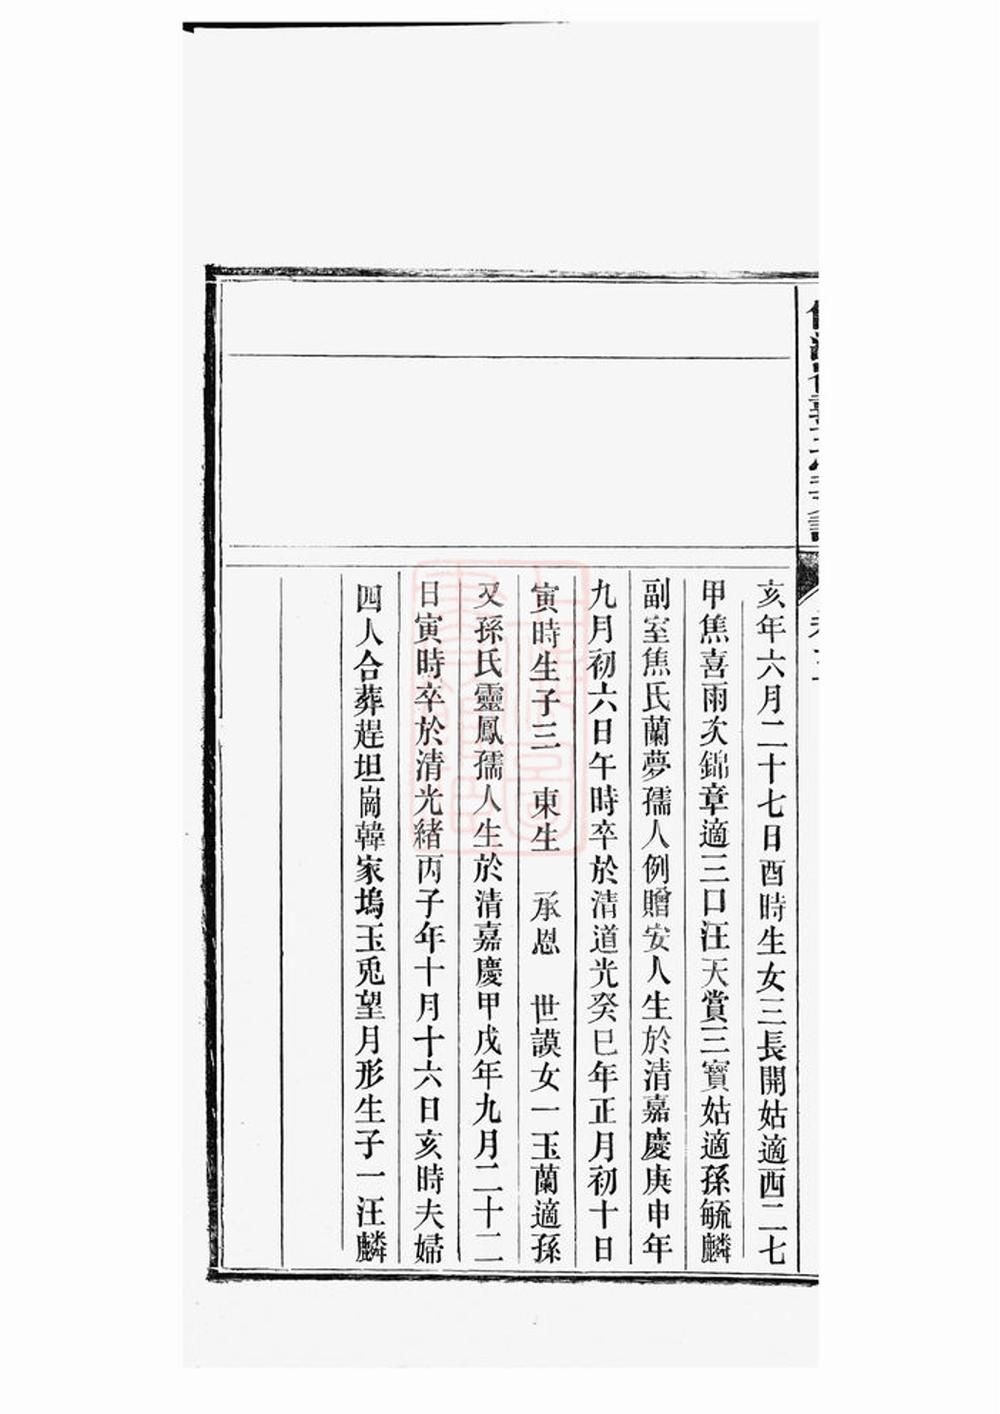 亥年六月二十七日酉時生女三長開姑適西二七
甲焦喜雨次錦章適三口汪天賞三寶姑適孫毓麟
副室焦氏蘭夢孺人例贈安人生於清嘉慶庚申年
九月初六日午時卒於清道光癸巳年正月初十日
寅時生子三　東生　承恩　世謨女一玉蘭適孫
又孫氏靈鳳孺人生於清嘉慶甲戌年九月二十二
日寅時卒於清光緒丙子年十月十六日亥時夫婦
四人合葬趕坦崗韓家塢玉兎望月形生子一汪麟